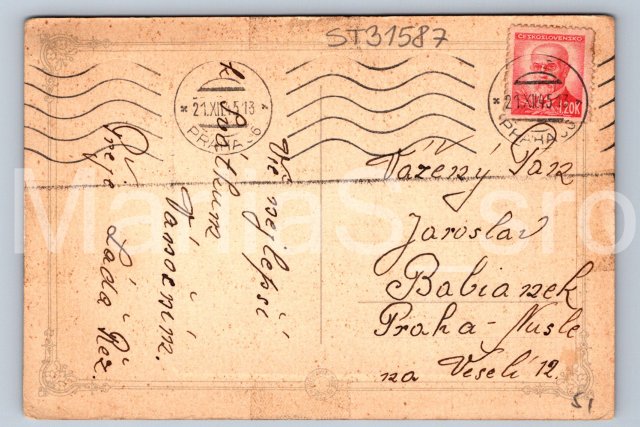 ST31587
ČESKOSLOVENSKO
1,20K
* 21.XII.45.13 *
PRAHA 36
* 21.XII.45.13
PRAHA 36
Vše nejlepší
k Svátkum
Vánočním.
Přeje Láďa Řež.
Vážený Pan
Jaroslav
Babianek
Praha-Nusle
na Veselí 12.
51
ManiaS_sro